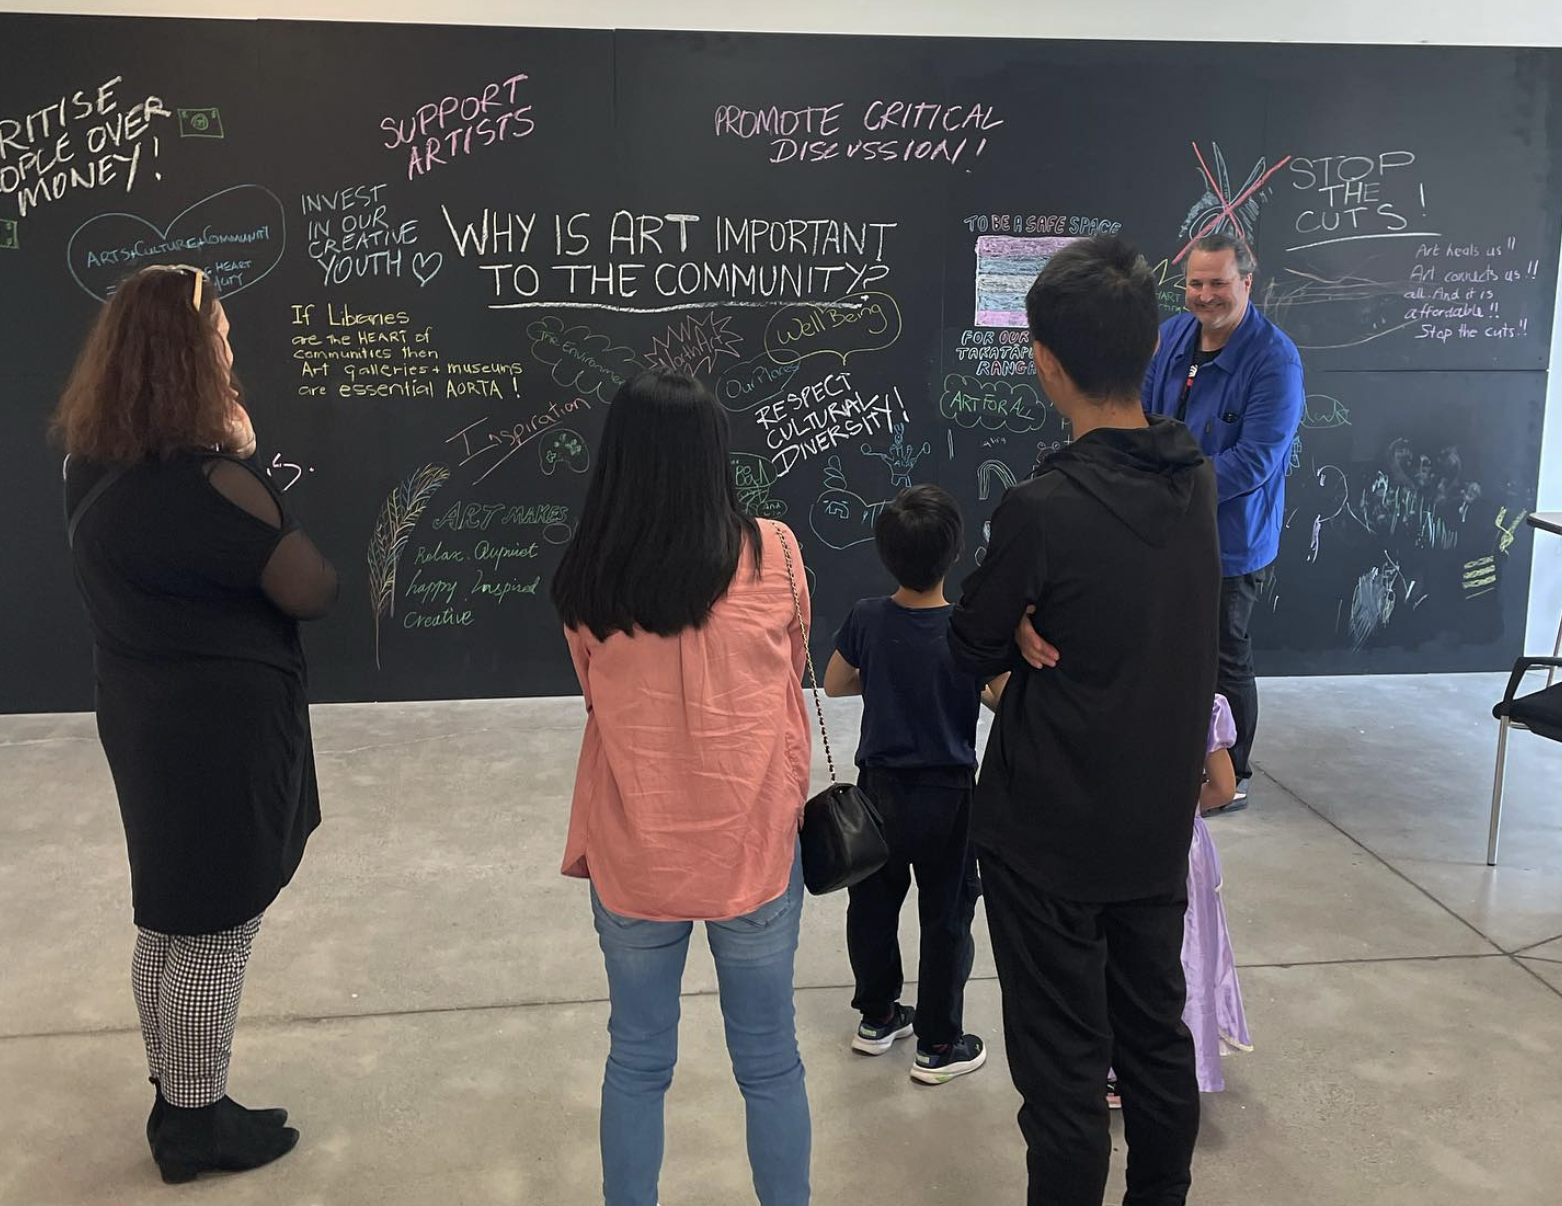 RITISE
OPLE OVER
MONEY!
SUPPORT
ARTISTS
PROMOTE CRITICAL
DISCUSSION!
STOP
THE
CUTS!
ARTS+CULTURE+COMMUNITY
HEART
INVEST
IN OUR
CREATIVE
YOUTH
WHY IS ART IMPORTANT
TO THE COMMUNITY?
TO BE A SAFE SPACE
FOR OUR
TAKATĀPU
RANGA
Art heals us!!
Art connects us!!
all. And it is
affordable!!
Stop the cuts!!
If Libraries
are the HEART of
communities then
Art galleries + museums
are essential AORTA!
The Environme
Well Being
RESPECT
CULTURAL
DIVERSITY!
ART FOR ALL
Inspiration
S.
ART MAKES
Relax. Quiet
happy. Inspired
Creative